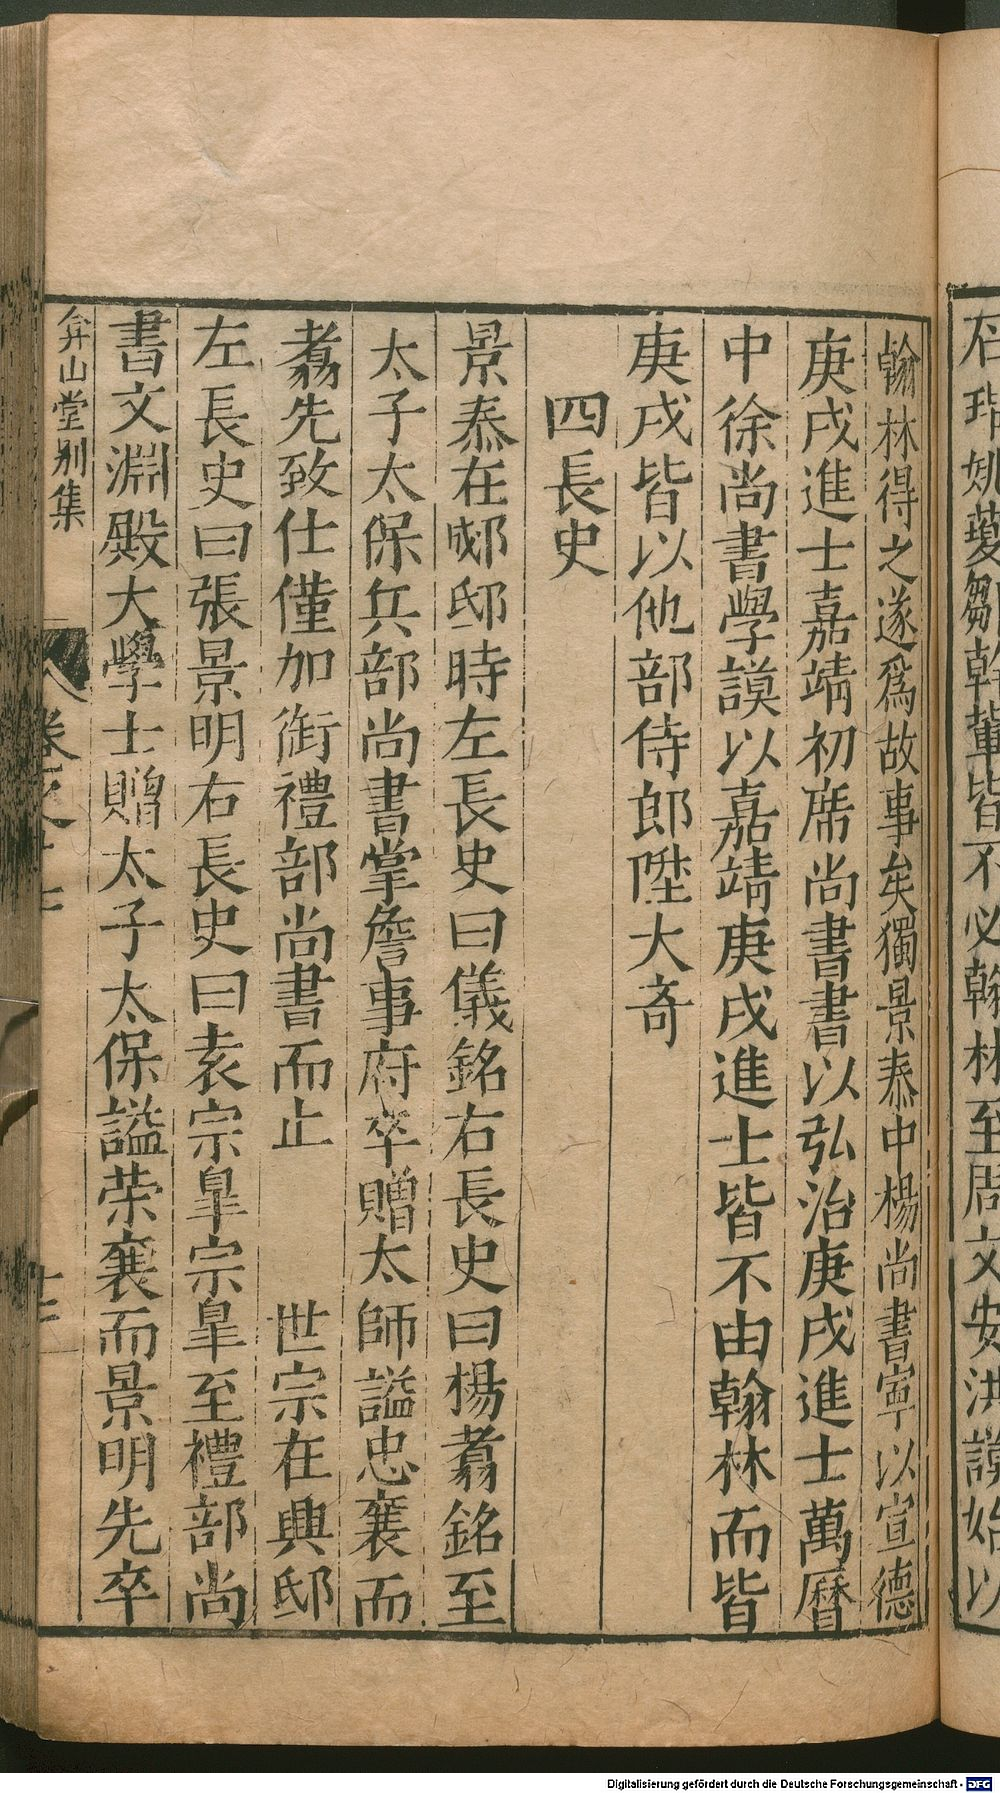 石珤姚夔芻幹輩皆不必翰林至周文安洪謨始以
翰林得之遂爲故事矣獨景泰中楊尚書寧以宣德
庚戌進士嘉靖初席尚書書以弘治庚戌進士萬曆
中徐尚書學謨以嘉靖庚戌進士皆不由翰林而皆
庚戌皆以他部侍郎陞大奇
四長史
景泰在郕邸時左長史曰儀銘右長史曰楊翥銘至
太子太保兵部尚書掌詹事府卒贈太師謚忠襄而
翥先致仕僅加銜禮部尚書而止 世宗在興邸
左長史曰張景明右長史曰袁宗皐宗皐至禮部尚
書文淵殿大學士贈太子太保謚荣襄而景明先卒
弇山堂別集
卷
Digitalisierung gefördert durch die Deutsche Forschungsgemeinschaft - DFG